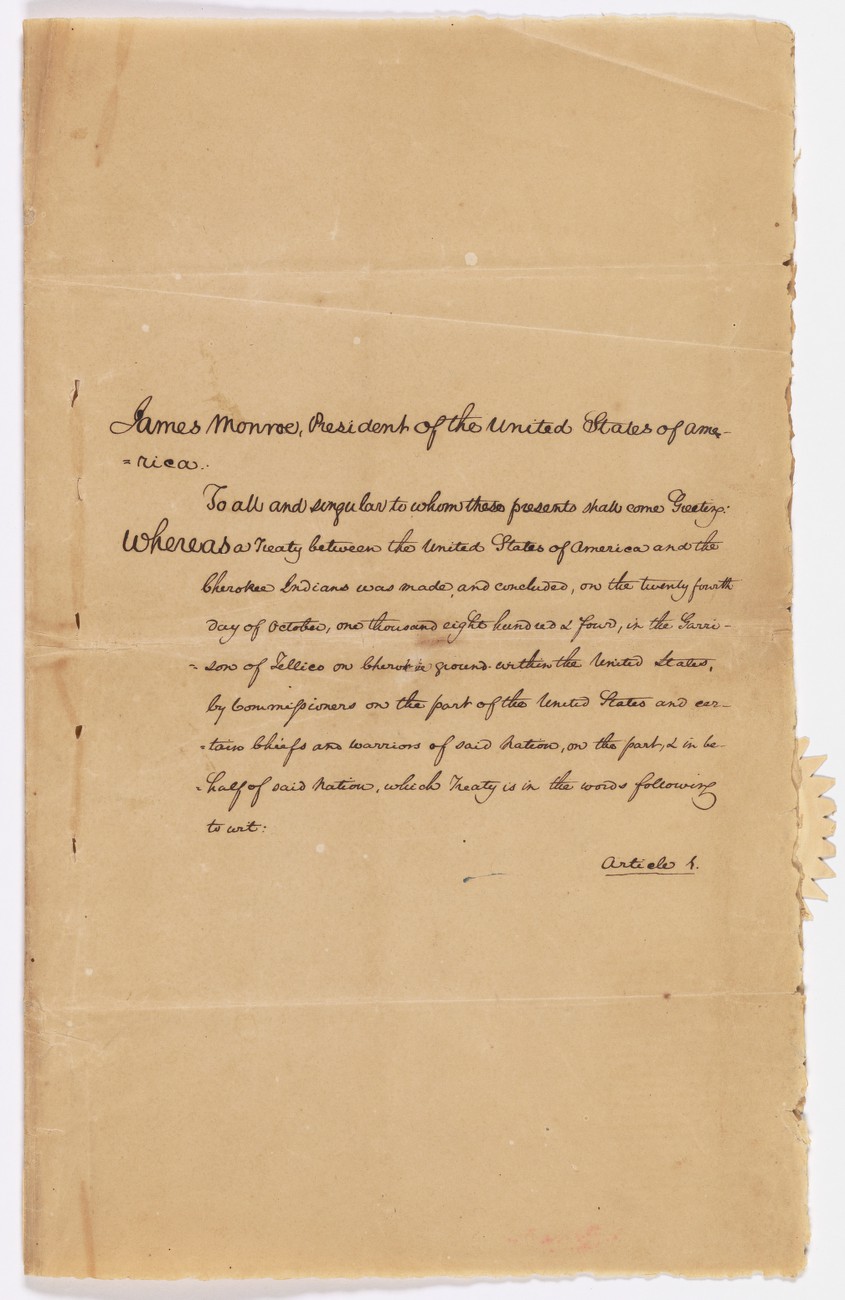 James Monroe, President of the United States of Ame-
=rica.
To all and singular to whom these presents shall come Greeting:
Whereas a Treaty between the United States of America and the
Cherokee Indians was made, and concluded, on the twenty fourth
day of October, one thousand eight hundred & four, in the Garri-
=son of Tellico on Cherokee ground within the United States,
by Commissioners on the part of the United States and cer-
=tain Chiefs and Warriors of said Nation, on the part, & in be-
=half of said Nation, which Treaty is in the words following
to wit:
Article 1.